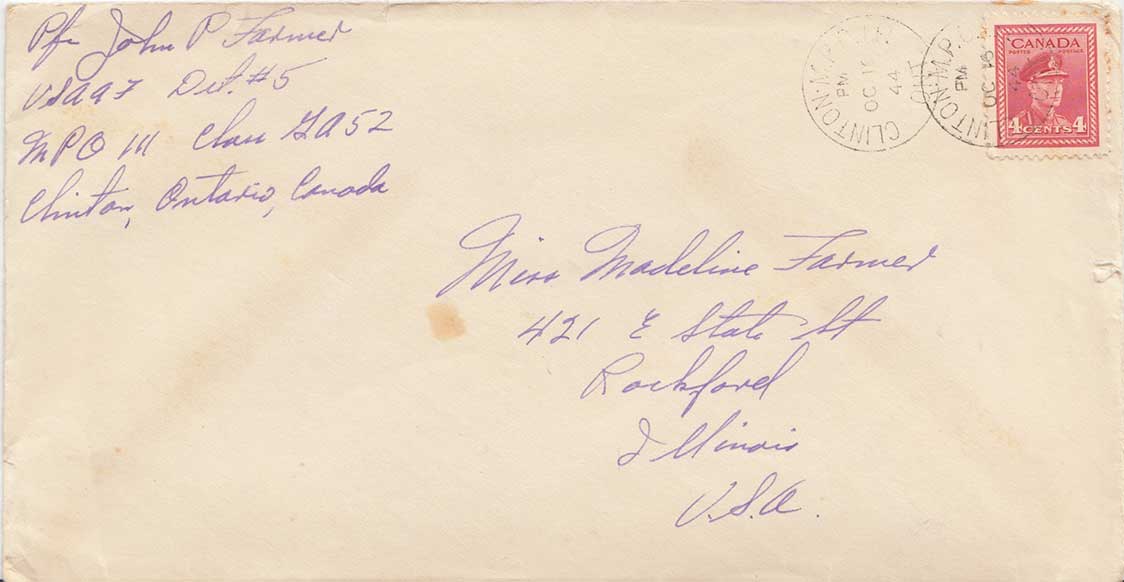 Pfc John P Farmer
USAAF Det. #5
MPO 111 Class GA 52
Clinton, Ontario, Canada
CLINTON. M.P.O.
PM
OC 16
44
ONT.
CLINTON. M.P.O.
PM
OC 16
44
CANADA
POSTES POSTAGE
4 CENTS 4
Miss Madeline Farmer
421 E State St
Rockford
Illinois
U.S.A.